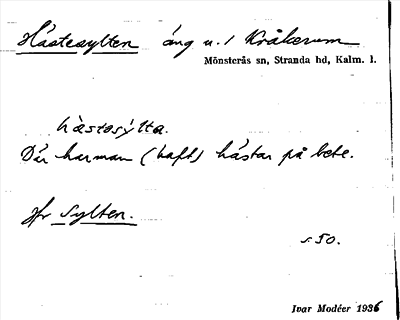 Hästesylten äng u. / Kråkerum
Mönsterås sn, Stranda hd, Kalm. l.
hàstəsýlta.
Där harman (haft) hästar på bete.
Jfr Sylten.
s. 50.
Ivar Modéer 1936